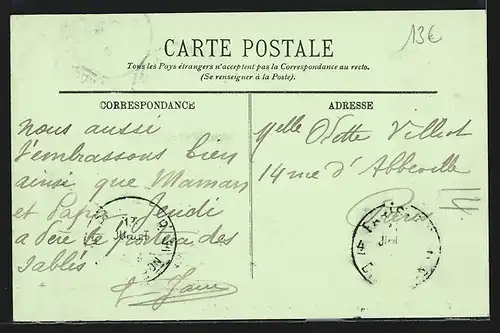 13€
CARTE POSTALE
Tous les Pays étrangers n'acceptent pas la Correspondance au recto.
(Se renseigner à la Poste).
CORRESPONDANCE
ADRESSE
nous aussi
t'embrassons bien
ainsi que Maman
et Papa Jeudi
des
sablés
Melle Odette
14 rue d'Abbeville
Paris
PARIS